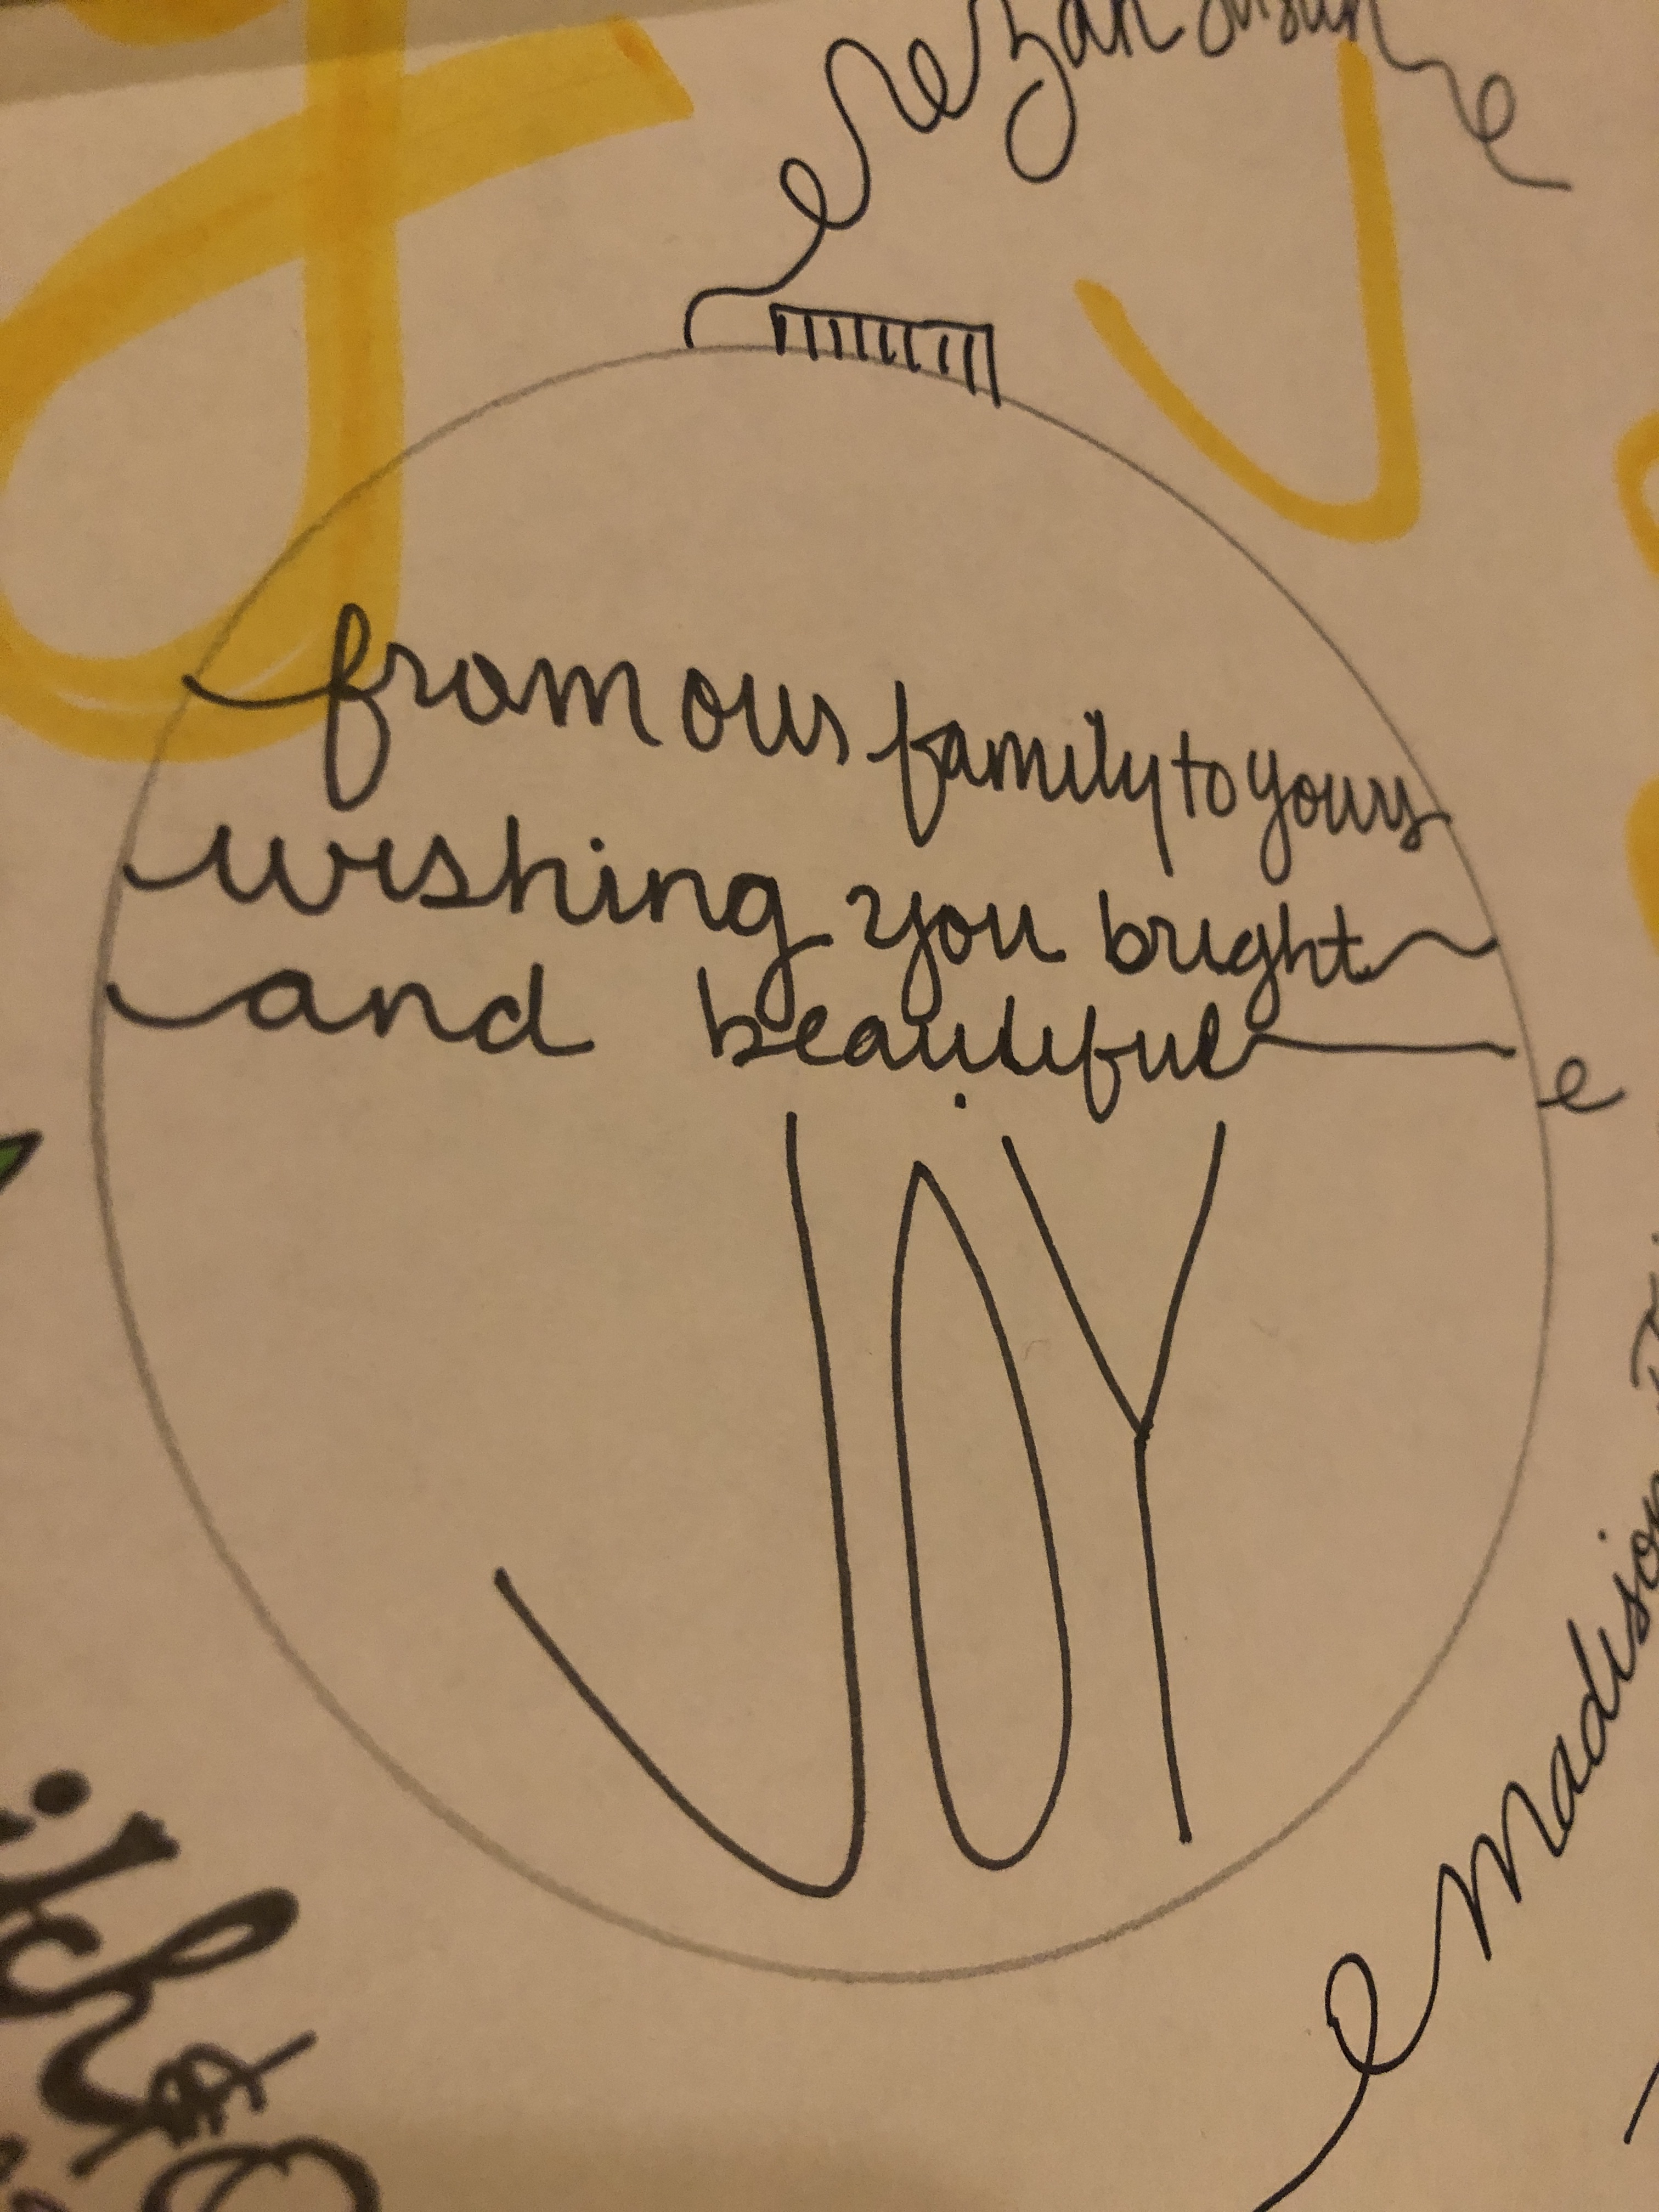 from our family to yours
wishing you bright
and beautiful
JOY
madison